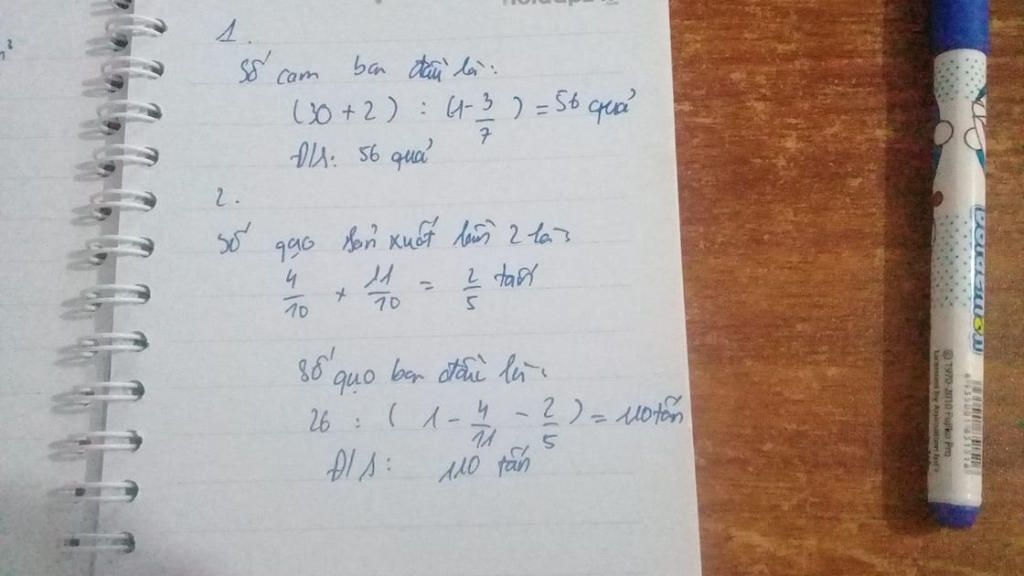 1.
Số cam ban đầu là:
(30 + 2) : (1 - 3/7) = 56 quả
Đ/S: 56 quả
2.
Số gạo sản xuất lần 2 là:
4/10 x 11/10 = 2/5 tấn
Số gạo ban đầu là:
26 : (1 - 4/11 - 2/5) = 110 tấn
Đ/S: 110 tấn
© 1970-2010 Fujiko Pro